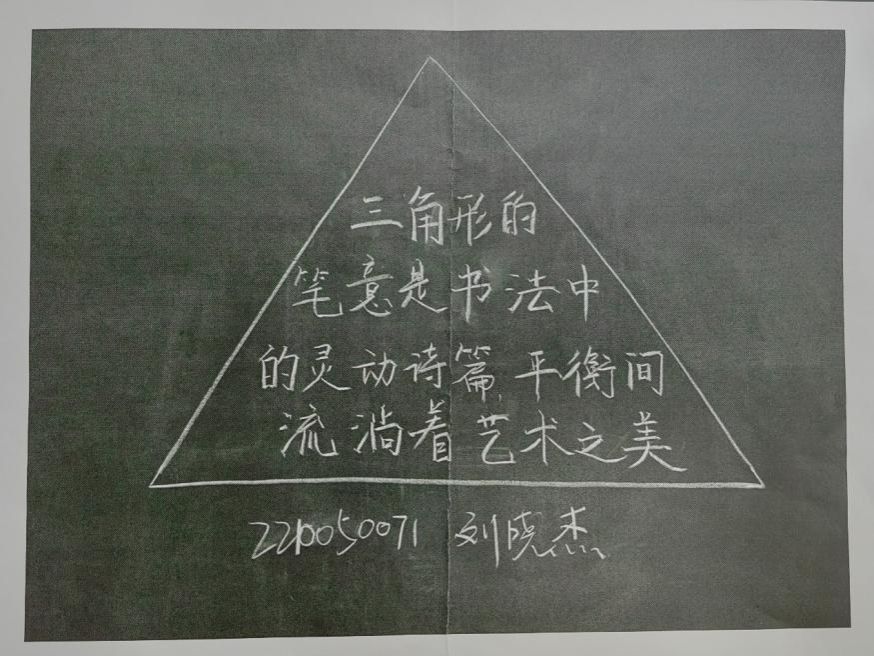 三角形的
笔意是书法中
的灵动诗篇,平衡间
流淌着艺术之美
220050071 刘晓杰